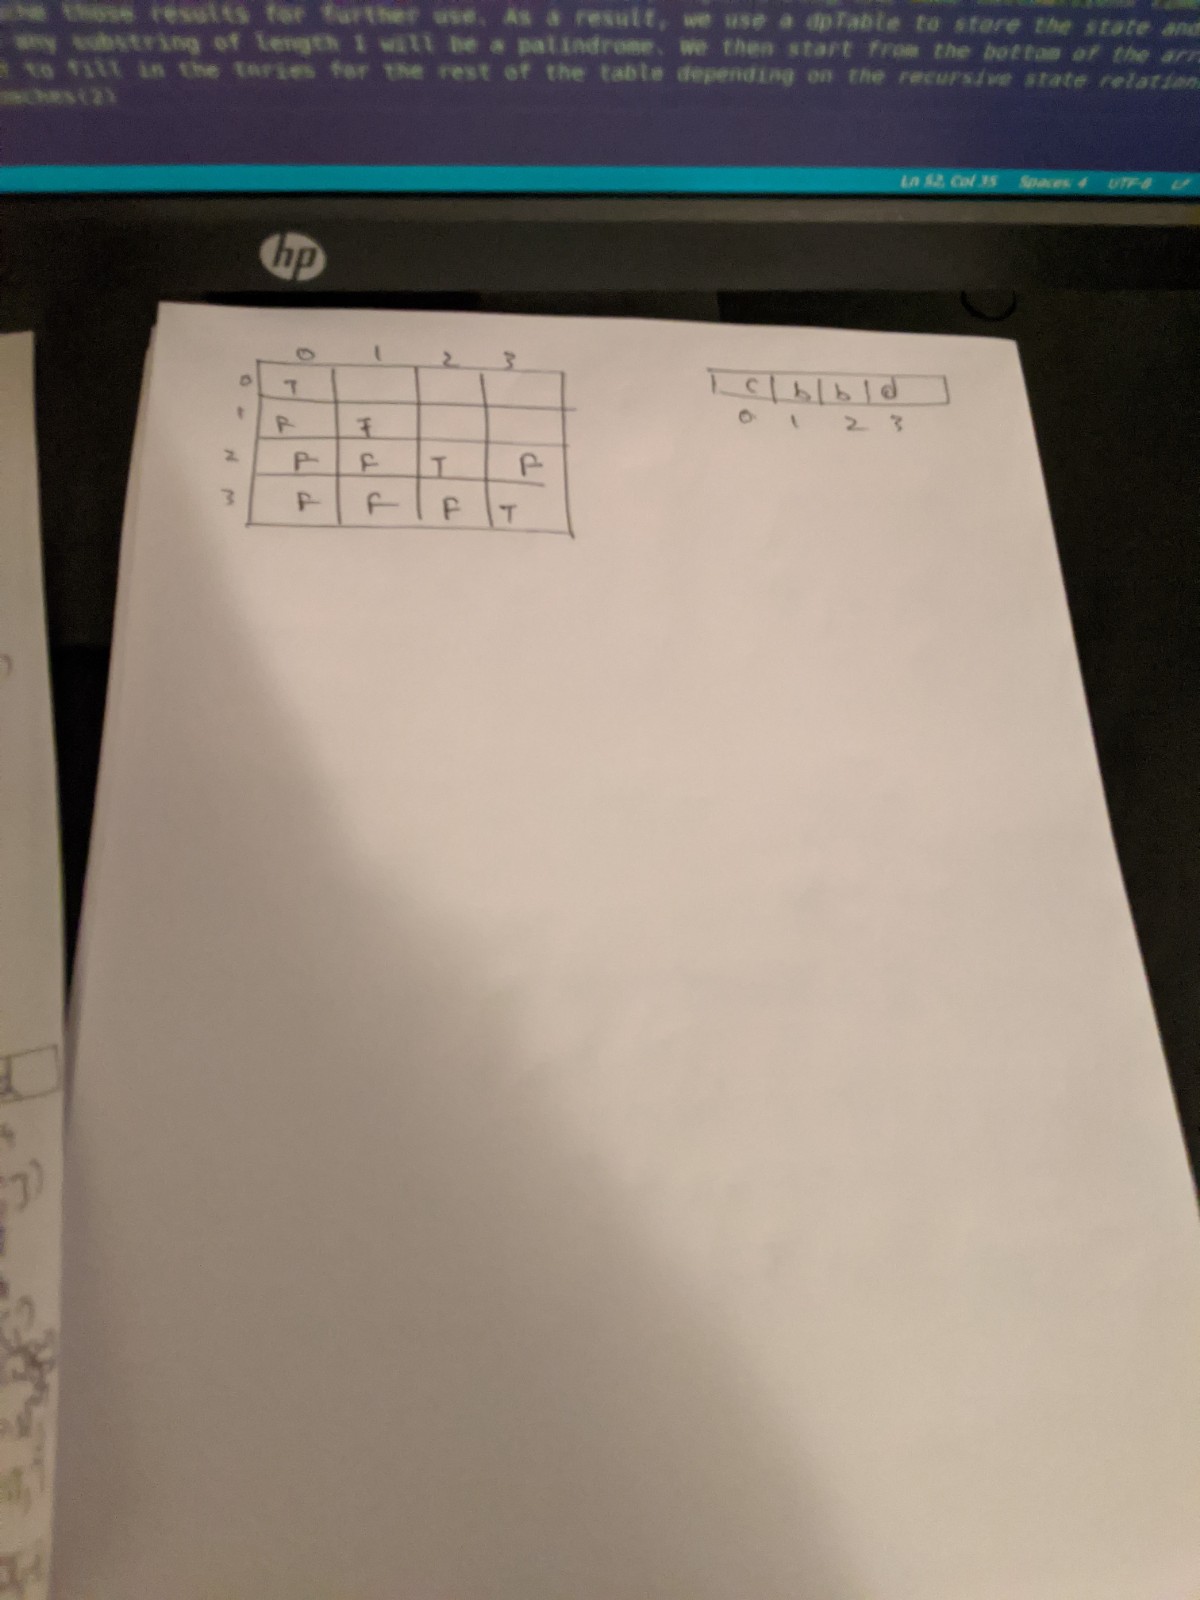 those results for further use. As a result, we use a dpTable to store the state and
any substring of length 1 will be a palindrome. We then start from the bottom of the arr
to fill in the tnries for the rest of the table depending on the recursive state relation
Ln 52, Col 35 Spaces: 4 UTF-8 LF
hp
0 1 2 3
0 T
1 F T
2 F F T F
3 F F F T
c b b d
0 1 2 3